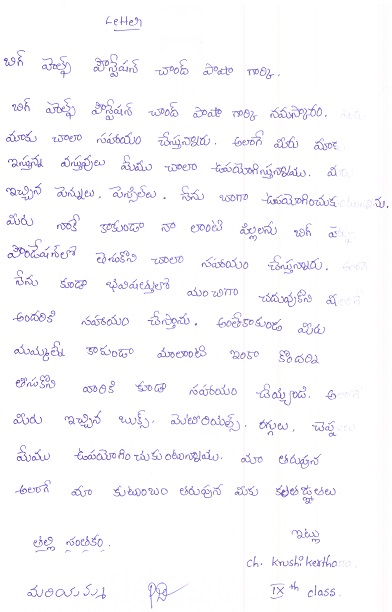 Letter
బిగ్ హెల్ప్ ఫౌండేషన్ చాంద్ పాషా గారికి.
బిగ్ హెల్ప్ ఫౌండేషన్ చాంద్ పాషా గారికి నమస్కారం.
మాకు చాలా సహాయం చేస్తున్నారు. అలాగే మీరు మాకు
ఇస్తున్న వస్తువులు మేము చాలా ఉపయోగిస్తున్నాము. మీరు
ఇచ్చిన పెన్నులు, పెన్సిలు, నేను బాగా ఉపయోగించుకుంటున్నాను.
మీరు నాకే కాకుండా నా లాంటి పిల్లలను బిగ్ హెల్ప్
ఫౌండేషన్‌లో తీసుకొని చాలా సహాయం చేస్తున్నారు.
నేను కూడా భవిషత్తులో మంచిగా చదువుకొని
అందరికి సహాయం చేస్తాను. అంతేకాకుండా మీరు
మమ్మల్నే కాకుండా మాలాంటి ఇంకా కొందరిని
తీసుకొని వారికి కూడా సహాయం చేయ్యండి.
మీరు ఇచ్చిన బుక్స్, మెటీరియల్స్, రగ్గులు,
మేము ఉపయోగించుకుంటున్నాము. మా తరుపున
అలాగే మా కుటుంబం తరుపున మీకు కృతజ్ఞతలు
ఇట్లు
తల్లి సంతకం.
ch. Krushikertha
మరియమ్మ
IXth class.